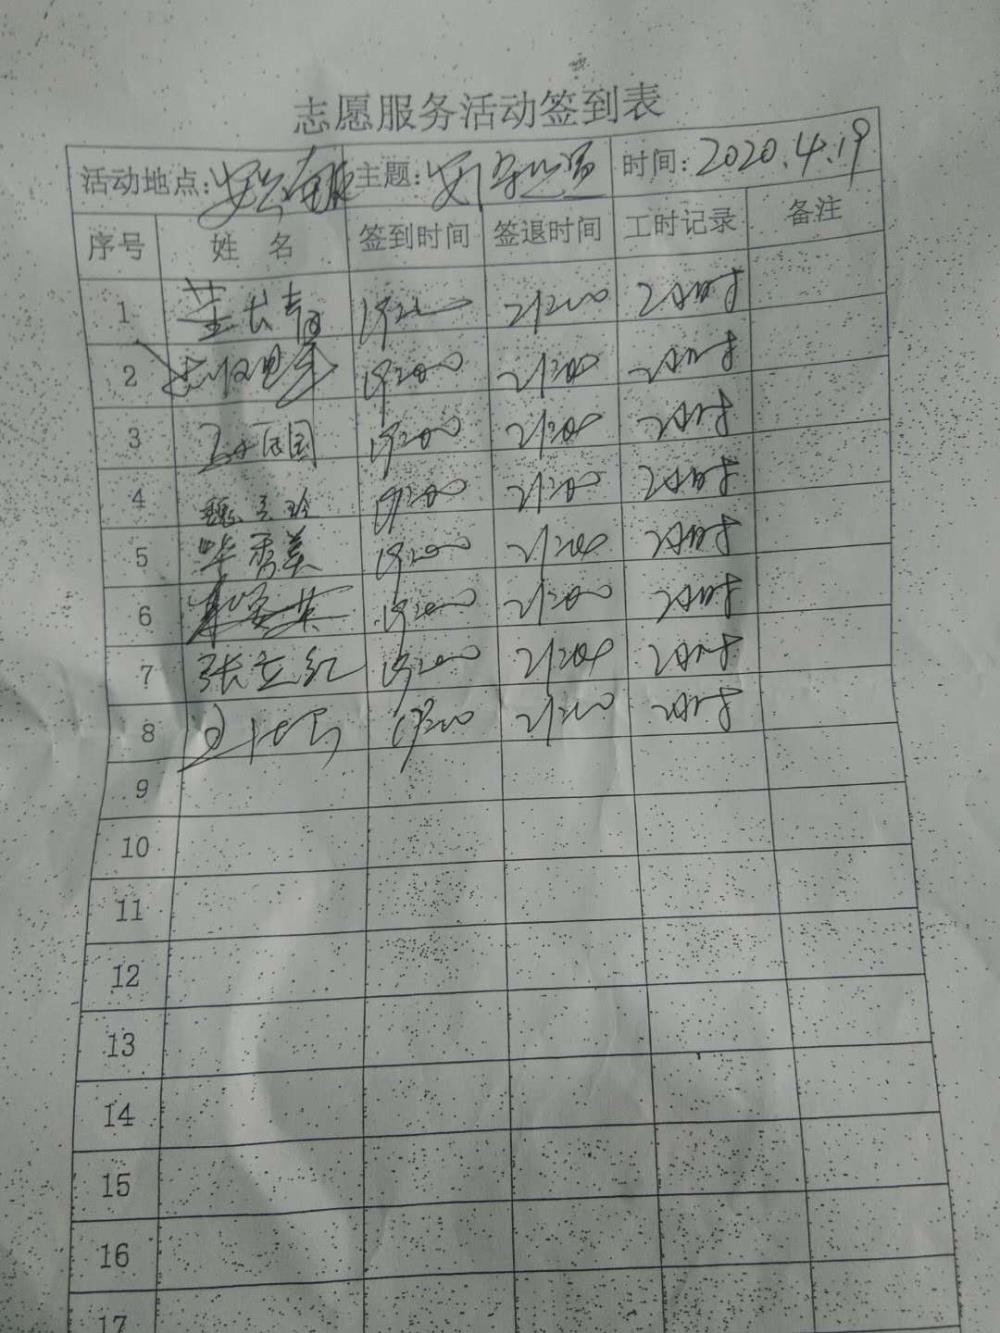 志愿服务活动签到表
活动地点: 主题: 时间:2020.4.19
序号 姓 名 签到时间 签退时间 工时记录 备注
1 董长青 19:00 21:00 2小时
2 19:00 21:00 2小时
3 国 19:00 21:00 2小时
4 魏 玲 19:00 21:00 2小时
5 毕秀英 19:00 21:00 2小时
6 英 19:00 21:00 2小时
7 张立红 19:00 21:00 2小时
8 19:00 21:00 2小时
9
10
11
12
13
14
15
16
17